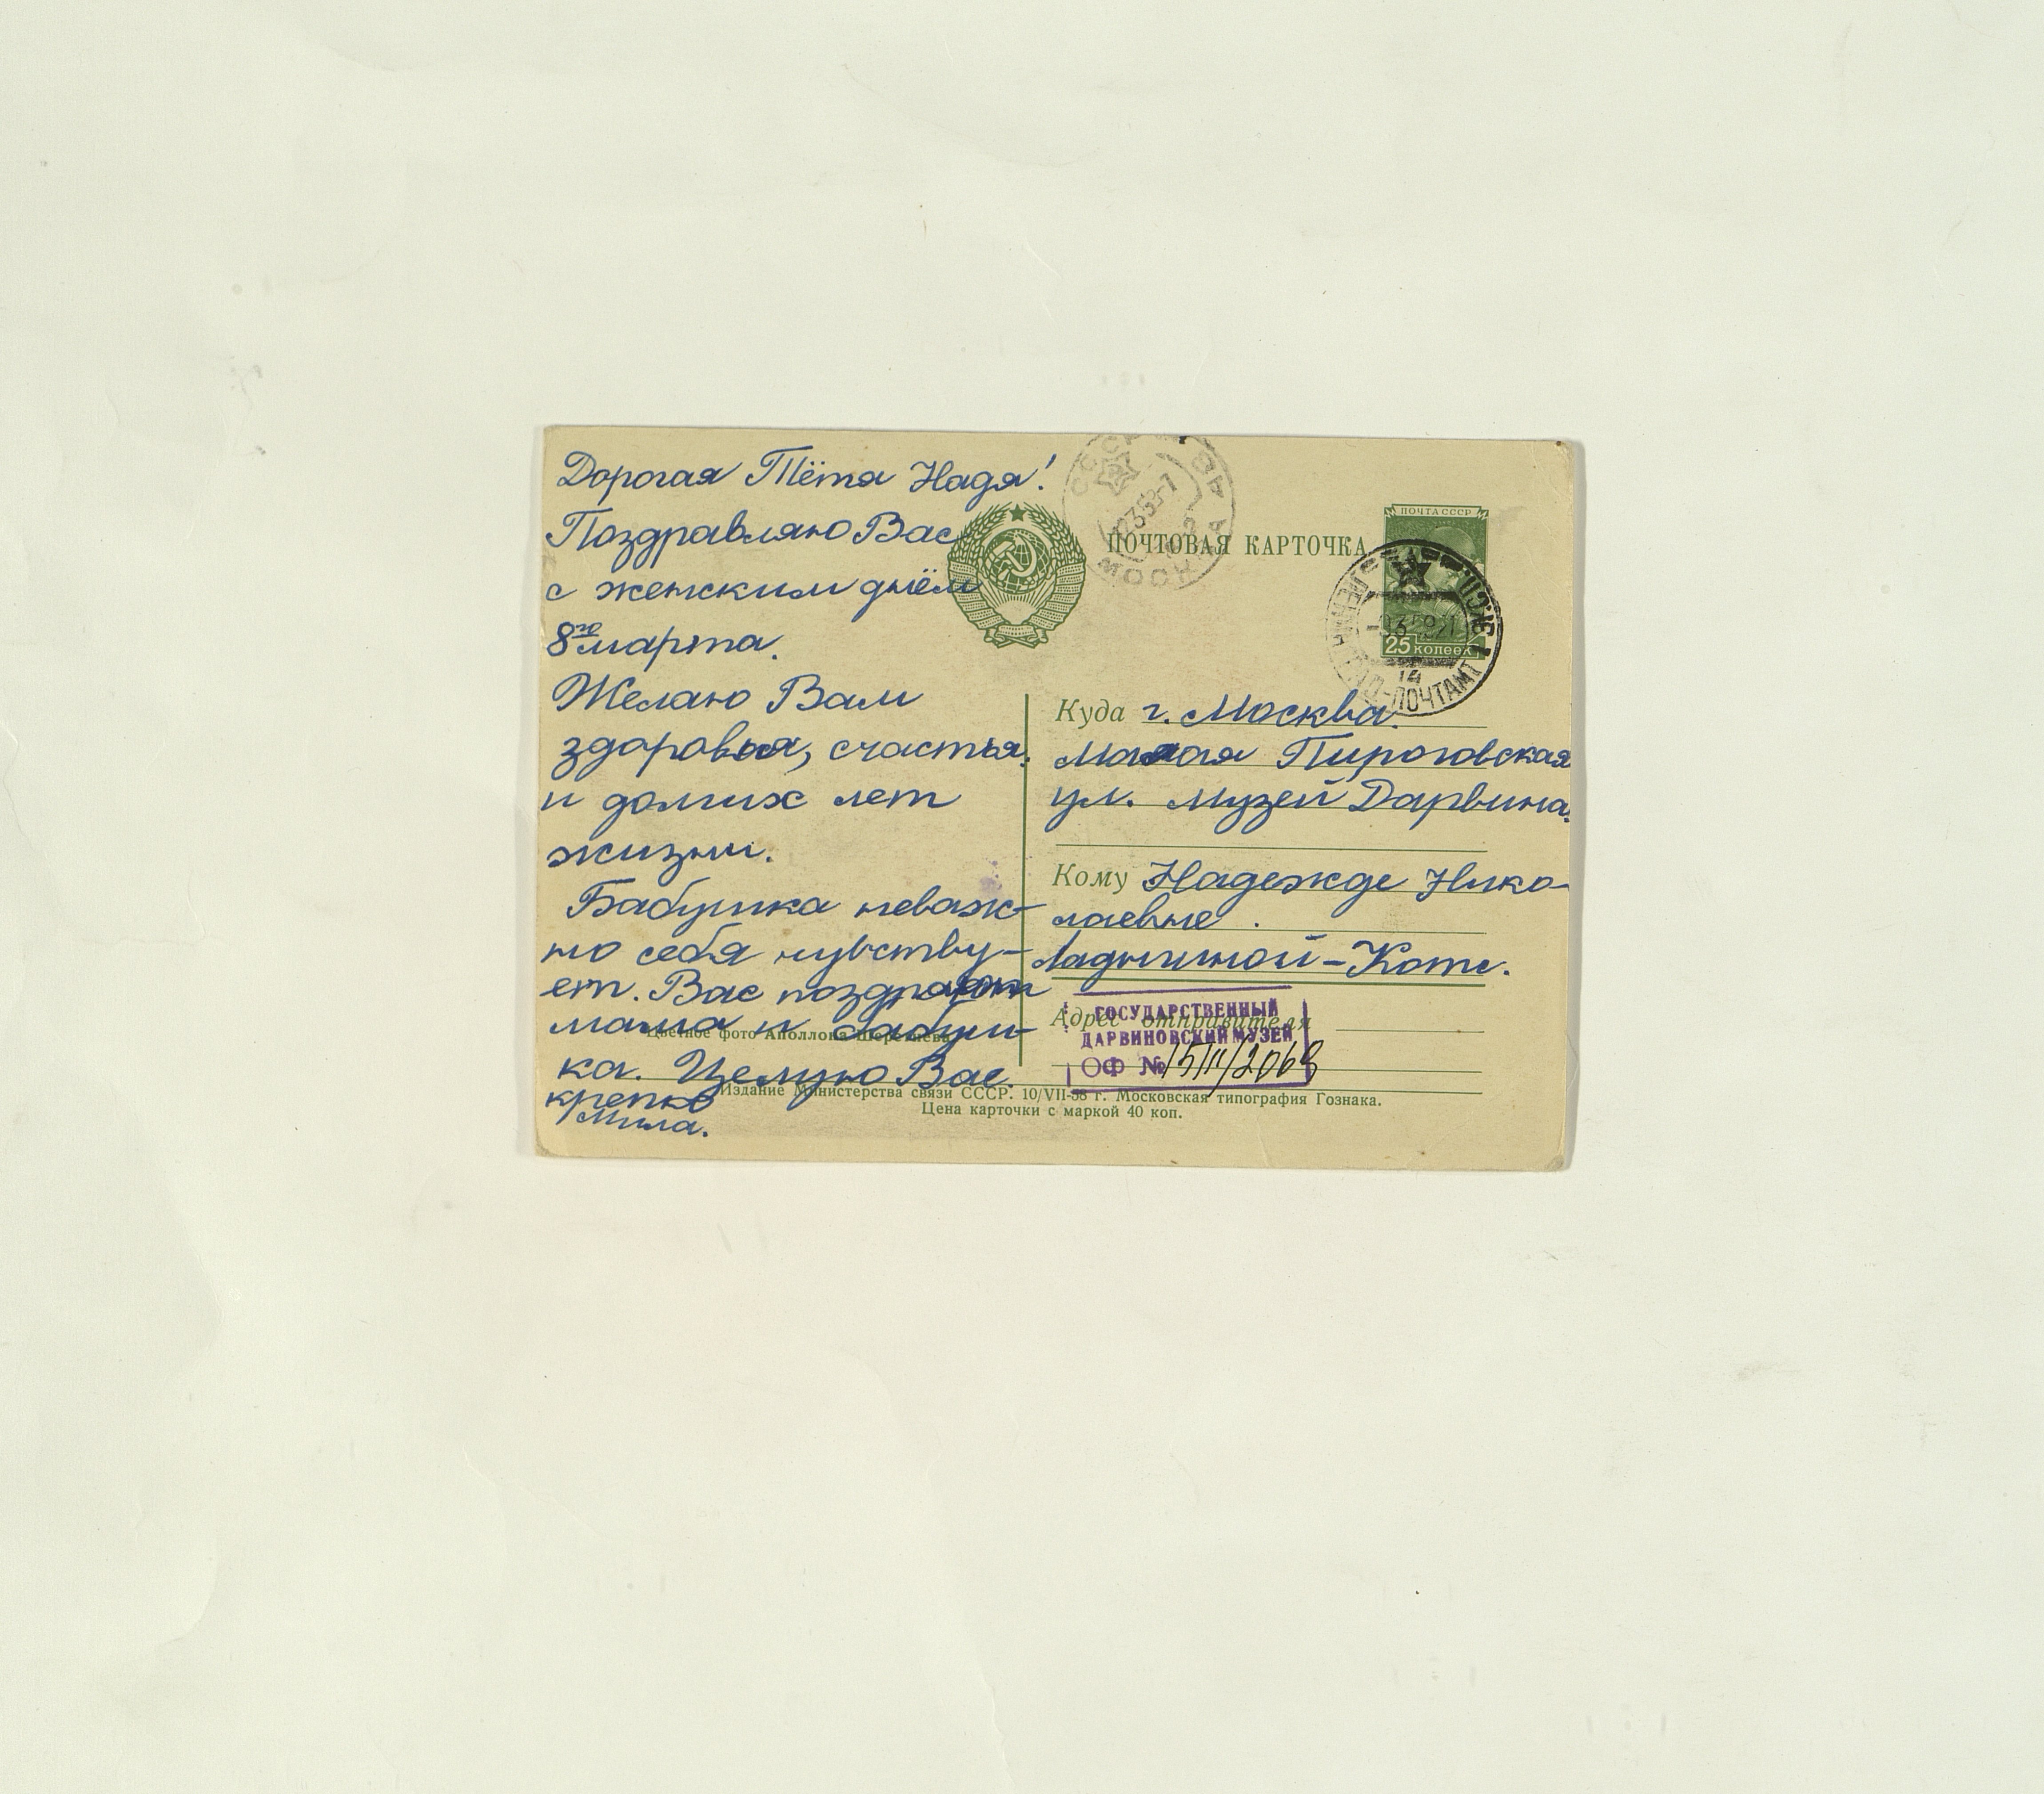 Дорогая Тётя Надя!
Поздравляю Вас
с женским днём
8го марта.
Желаю Вам
здоровья, счастья.
и долгих лет
жизни.
Бабушка неваж-
но себя чувству-
ет. Вас поздравляют
мама и бабуш-
ка. Целую Вас.
крепко
Мила.
Цветное фото Аполлона Шерстнева
СССР
МОСКВА
ПОЧТОВАЯ КАРТОЧКА
ПОЧТА СССР
25 КОПЕЕК
ЛЕНИНГРАД-ПОЧТАМТ
14
Куда г. Москва.
Малая Пироговская
ул. Музей Дарвина.
Кому Надежде Нико-
лаевне.
Ладыгиной-Котс.
Адрес отправителя
ГОСУДАРСТВЕННЫЙ
ДАРВИНОВСКИЙ МУЗЕЙ
ОФ №
Издание Министерства связи СССР. 10/VII-58 г. Московская типография Гознака.
Цена карточки с маркой 40 коп.